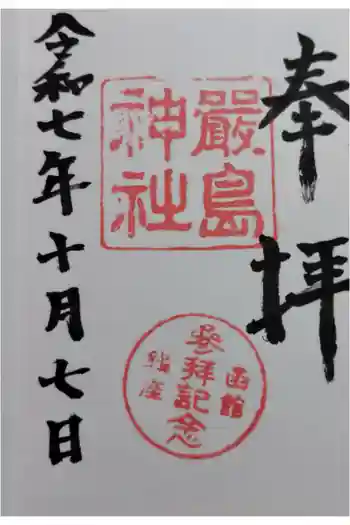 奉拝
厳島
神社
函館
参拝記念
鎮座
令和七年十月七日